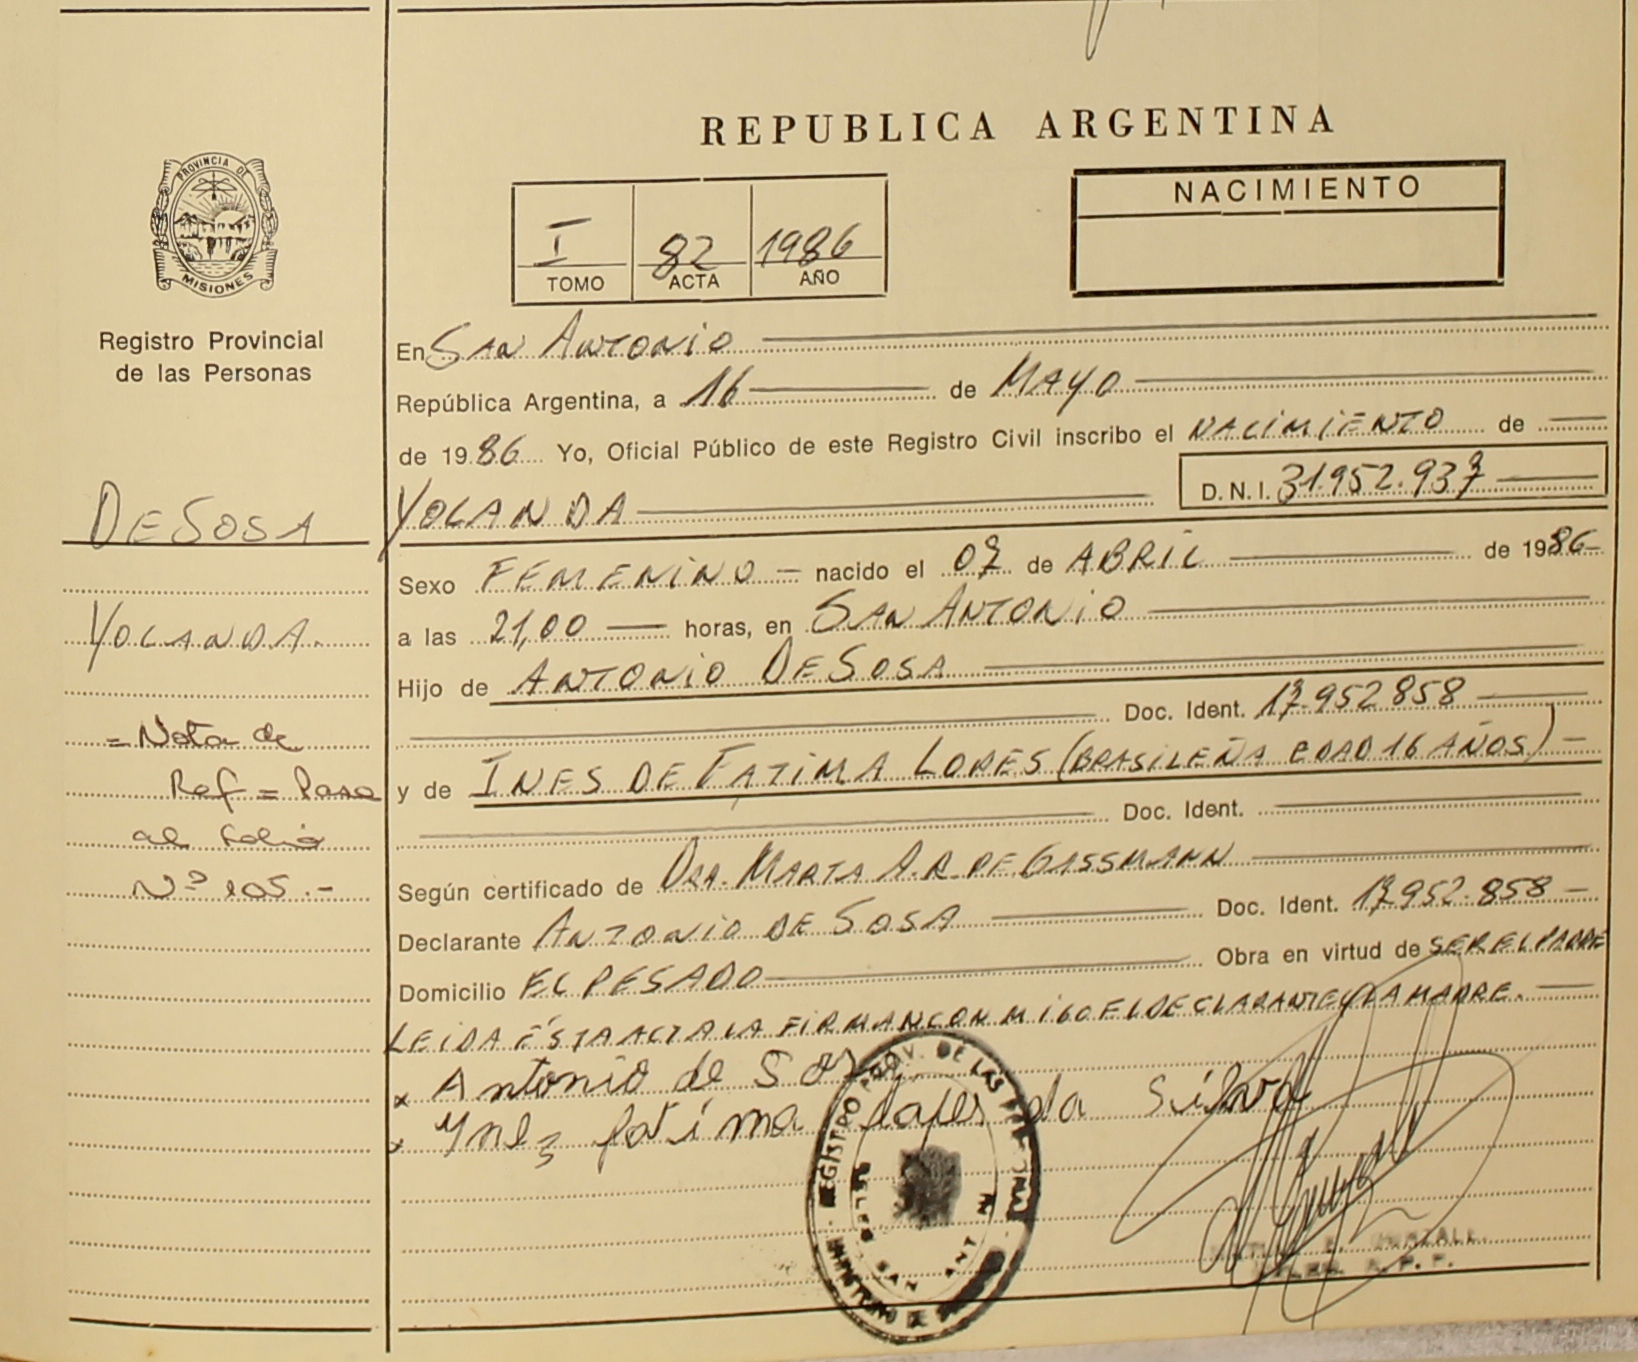 REPUBLICA ARGENTINA
PROVINCIA DE
MISIONES
Registro Provincial
de las Personas
I 82 1986
TOMO ACTA AÑO
NACIMIENTO
En SAN ANTONIO
República Argentina, a 16 de MAYO
de 1986 Yo, Oficial Público de este Registro Civil inscribo el NACIMIENTO de
D.N.I. 31.952.937
DESOSA YOLANDA
Sexo FEMENINO nacido el 07 de ABRIL de 1986
YOLANDA.
a las 21,00 horas, en SAN ANTONIO
Hijo de ANTONIO DESOSA
Doc. Ident. 17.952858
= Nota de
Ref = Pasa
al folio
Nº 105.-
y de INES DE FATIMA LOPES (BRASILEÑA EDAD 16 AÑOS)
Doc. Ident.
Según certificado de DRA. MARTA A.R. DE GASSMANN
Declarante ANTONIO DE SOSA Doc. Ident. 17.952.858
Domicilio EL PESADO Obra en virtud de SER EL PADRE
LEIDA ÉSTA ACTA LA FIRMAN CONMIGO EL DECLARANTE Y LA MADRE.
x Antonio de Sosa
x Ynes fatima lopes da silva
REGISTRO PROV. DE LAS
SAN ANT